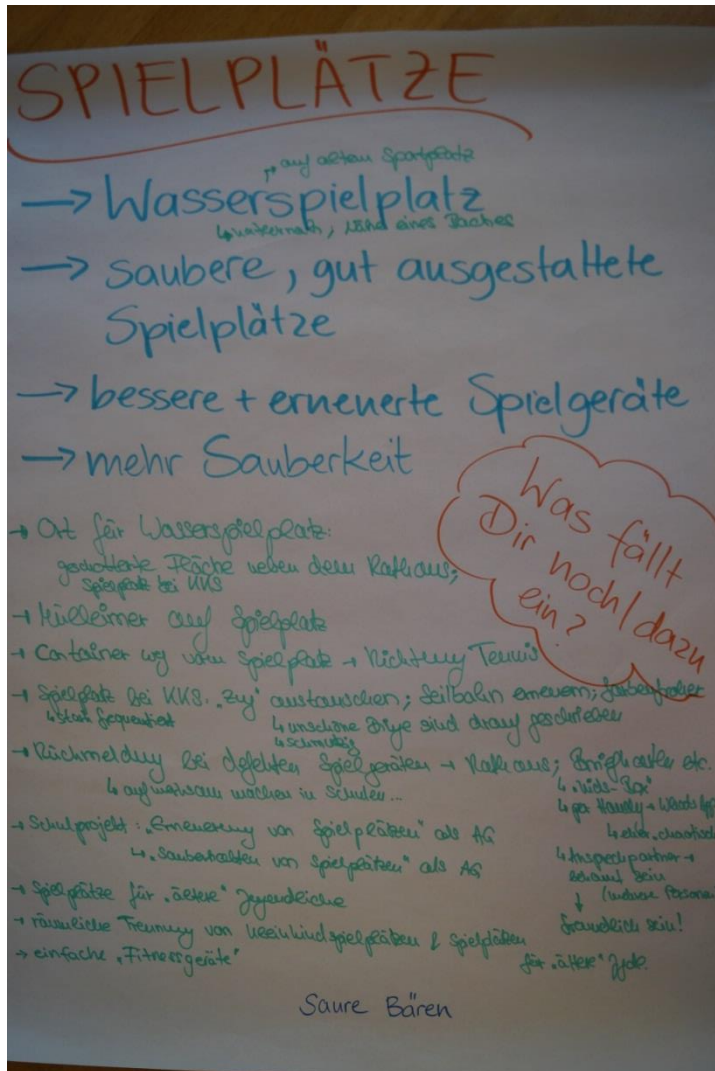 SPIELPLÄTZE
↱ auf altem Sportplatz
→ Wasserspielplatz
↳ naturnah, eines Baches
→ saubere, gut ausgestaltete
Spielplätze
→ bessere + erneuerte Spielgeräte
→ mehr Sauberkeit
Was fällt
Dir noch/dazu
ein?
→ Ort für Wasserspielplatz:
geschotterte Fläche neben dem Rathaus;
Spielplatz bei KKS
→ Mülleimer auf Spielplatz
→ Container weg vom Spielplatz → Richtung Tennis
→ Spielplatz bei KKS: "Zug" austauschen; Seilbahn erneuern; farbenfroher
↳ stark frequentiert ↳ unschöne Dinge sind drauf geschrieben
↳ schmutzig
→ Rückmeldung bei defekten Spielgeräten → Rathaus; Briefkasten etc.
↳ aufmerksam machen in Schulen... ↳ "Kids-Box"
↳ per Handy + WhatsApp
→ Schulprojekt: "Erneuerung von Spielplätzen" als AG ↳ eher chaotisch
↳ "Sauberhalten von Spielplätzen" als AG ↳ Ansprechpartner →
bekannt sein
→ Spielplätze für "ältere" Jugendliche (mehrere Personen
→ räumliche Trennung von Kleinkindspielplätzen & Spielplätzen ↓ freundlich sein!
für "ältere" Jgdl.
→ einfache "Fitnessgeräte"
Saure Bären